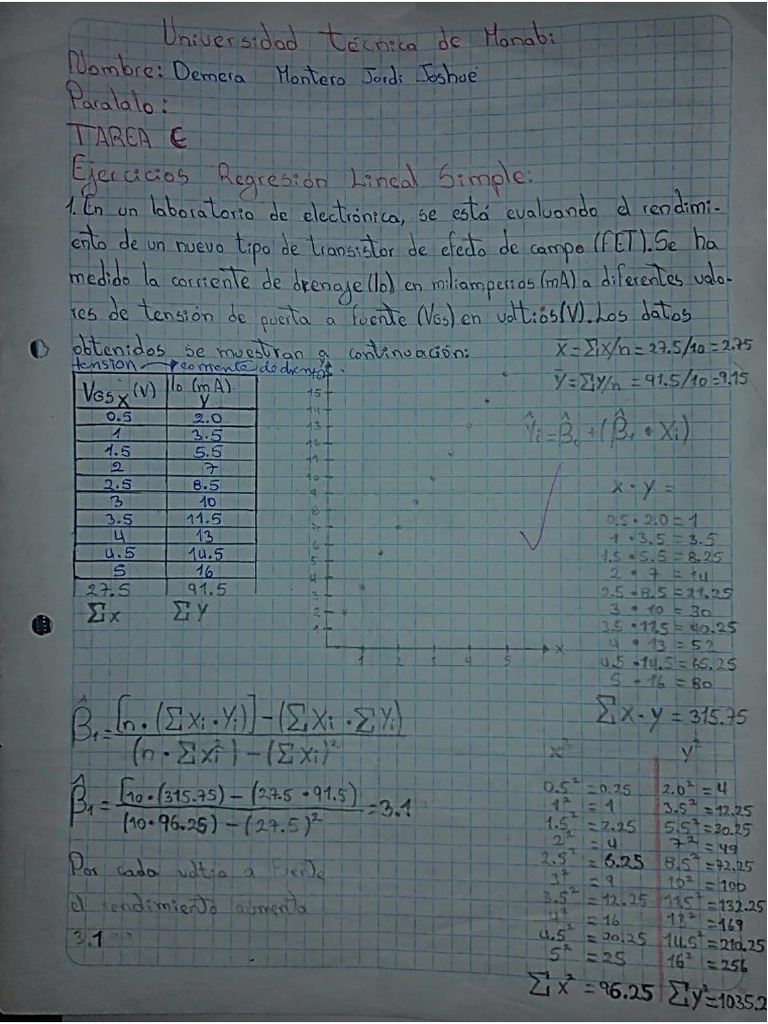 Universidad técnica de Manabi
Nombre: Demera Montero Jordi Joshué
Paralalo:
TAREA C
Ejercicios Regresión Lineal Simple:
1. En un laboratorio de electrónica, se está evaluando el rendimi-
ento de un nuevo tipo de transistor de efecto de campo (FET). Se ha
medido la corriente de drenaje (ID) en miliamperios (mA) a diferentes valo-
res de tensión de puerta a fuente (VGS) en voltios (V). Los datos
obtenidos se muestran a continuación:
X̄ = Σx/n = 27.5/10 = 2.75
Ȳ = Σy/n = 91.5/10 = 9.15
tension corriente de drenaje.
VGS x (V) ID (mA) y
0.5 2.0
1 3.5
1.5 5.5
2 7
2.5 8.5
3 10
3.5 11.5
4 13
4.5 14.5
5 16
27.5 91.5
Σx Σy
15
14
13
12
11
10
9
8
7
6
5
4
3
2
1
1 2 3 4 5 x
Ŷi = β̂0 + (β̂1 • Xi)
x • y =
0.5 • 2.0 = 1
1 • 3.5 = 3.5
1.5 • 5.5 = 8.25
2 • 7 = 14
2.5 • 8.5 = 21.25
3 • 10 = 30
3.5 • 11.5 = 40.25
4 • 13 = 52
4.5 • 14.5 = 65.25
5 • 16 = 80
Σx • y = 315.75
β̂1 = [n • (Σxi • yi)] - (Σxi • Σyi) / (n • Σxi²) - (Σxi)²
β̂1 = [10 • (315.75) - (27.5 • 91.5) / (10 • 96.25) - (27.5)² = 3.1
Por cada voltio a
el rendimiento aumenta
3.1
x² y²
0.5² = 0.25 2.0² = 4
1² = 1 3.5² = 12.25
1.5² = 2.25 5.5² = 30.25
2² = 4 7² = 49
2.5² = 6.25 8.5² = 72.25
3² = 9 10² = 100
3.5² = 12.25 11.5² = 132.25
4² = 16 13² = 169
4.5² = 20.25 14.5² = 210.25
5² = 25 16² = 256
Σx² = 96.25 Σy² = 1035.2